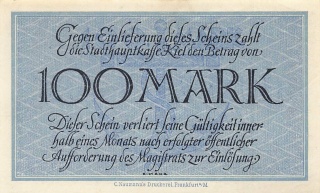 Gegen Einlieferung dieses Scheins zahlt
die Stadthauptkasse Kiel den Betrag von
100 MARK
Dieser Schein verliert seine Gültigkeit inner-
halb eines Monats nach erfolgter öffentlicher
Aufforderung des Magistrats zur Einlösung
C. Naumann's Druckerei, Frankfurt a/M.